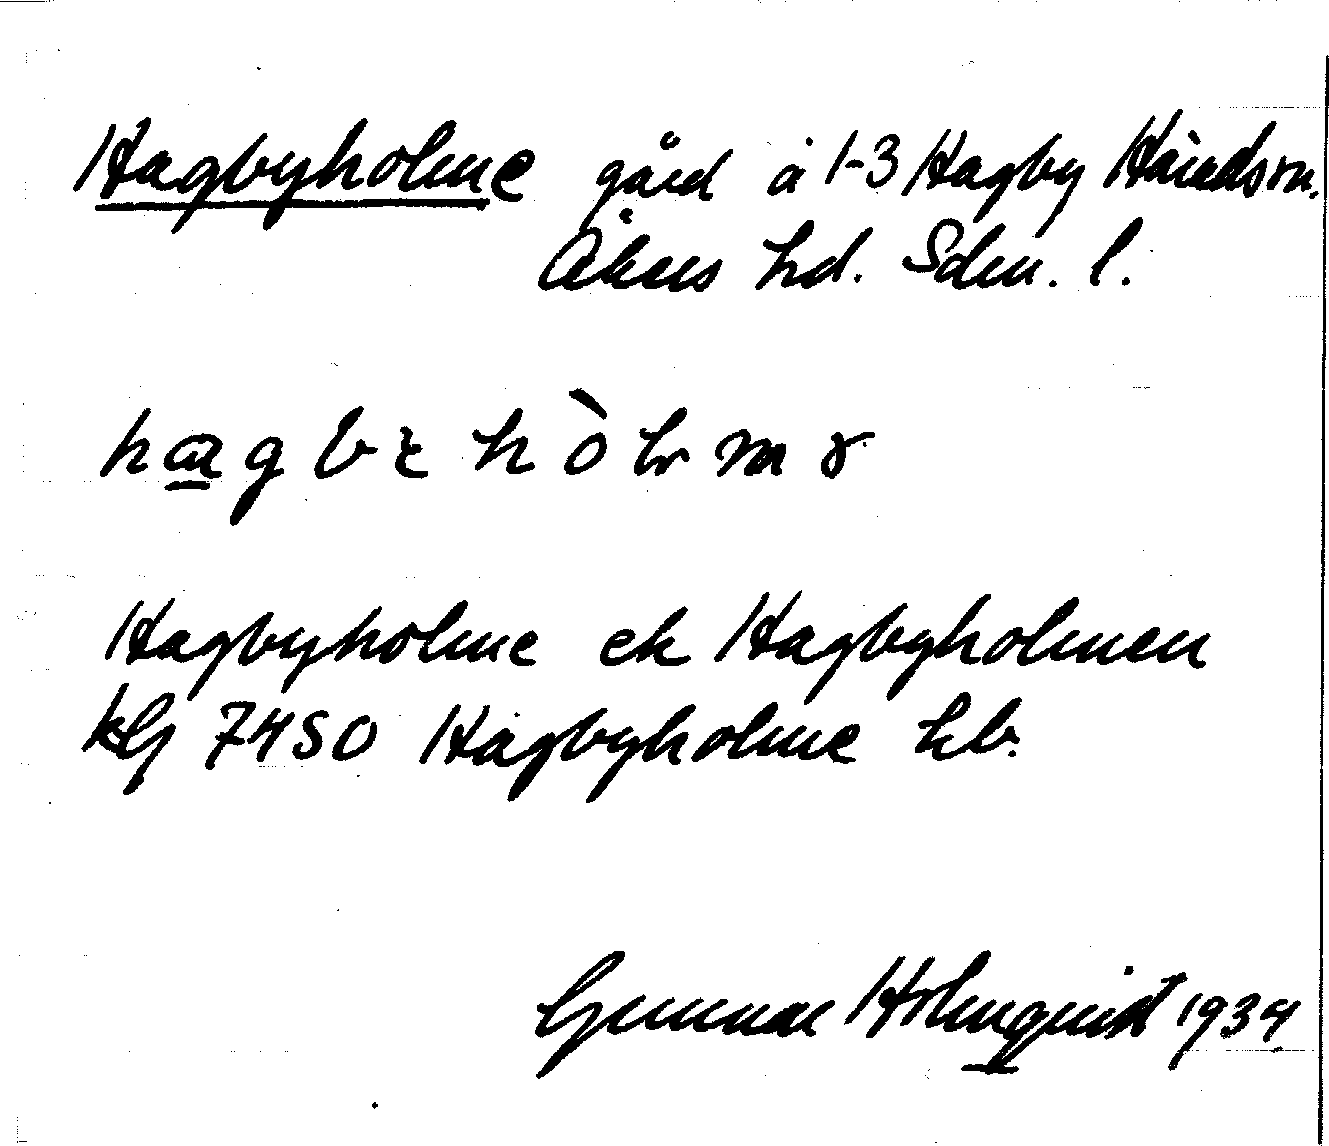 Hagbyholme gård å 1-3 Hagby Häradsm.
Åkers hd. Södm. l.
Hagbyholme ek Hagbyholmen
7450 Hagbyholme hb.
Gunnar Holmquist 1934